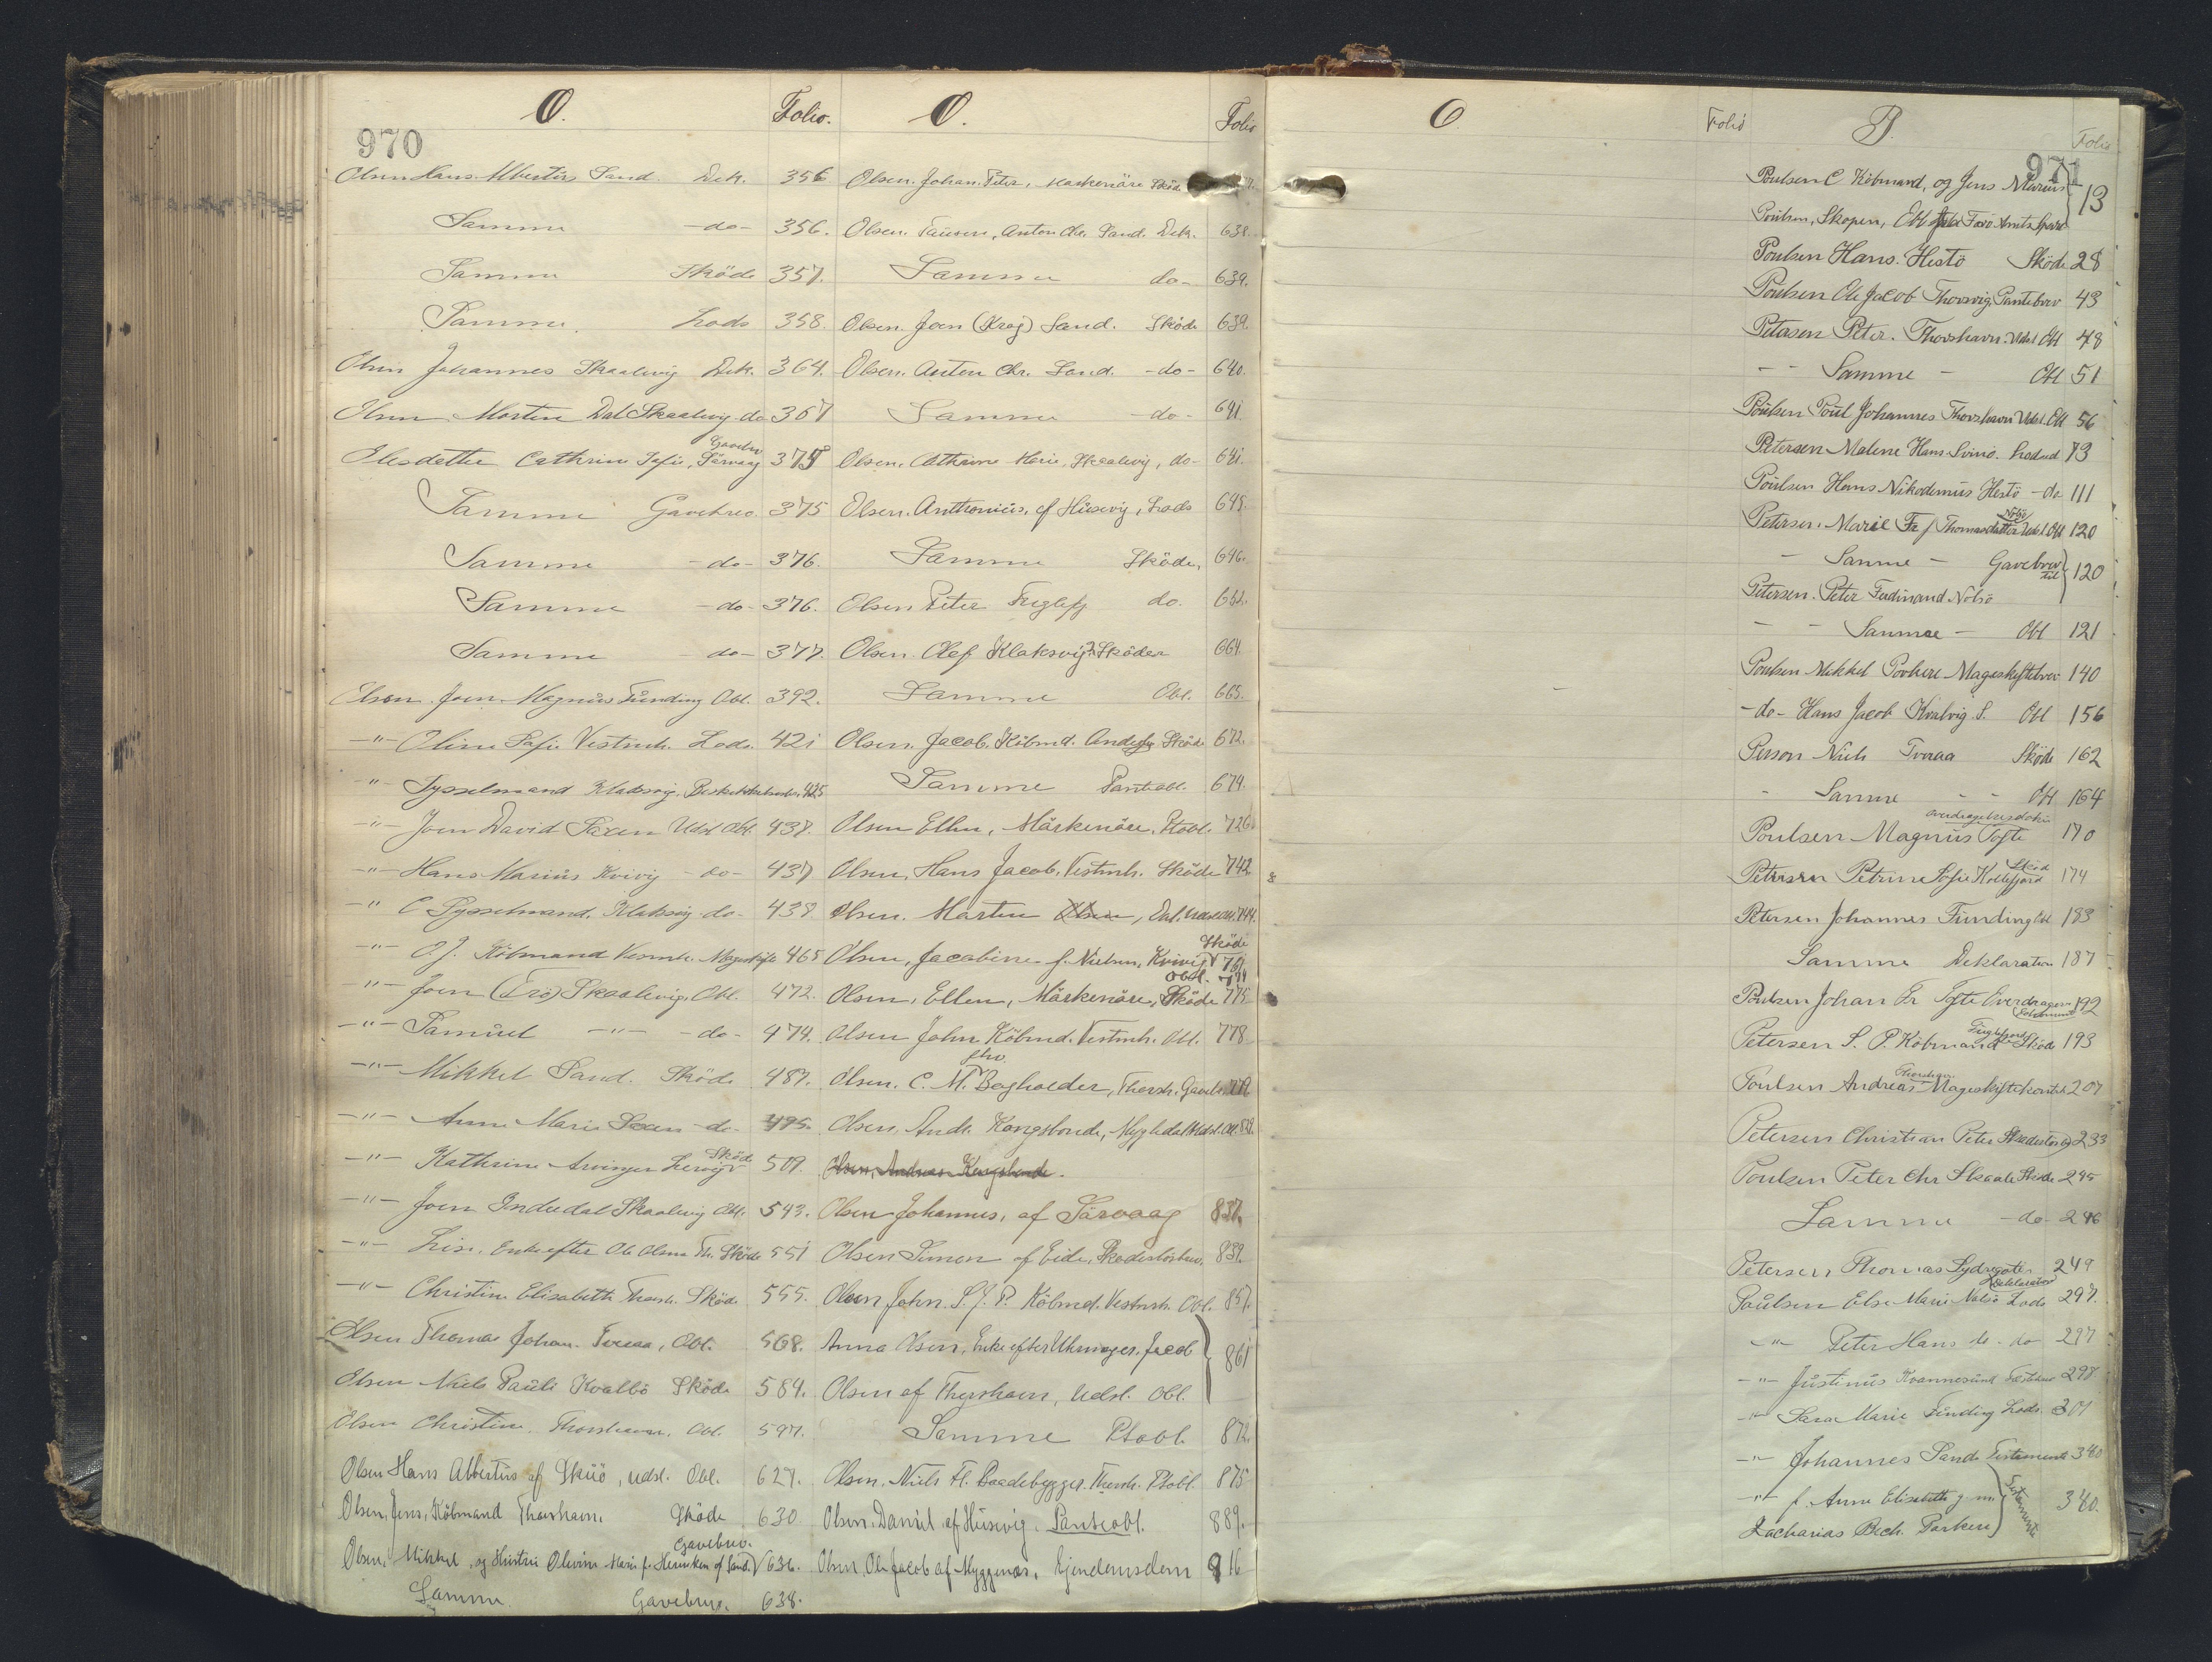 970
O. Folio.
Olsen Hans Albertus Sand. Dek. 356
Samme -do- 356.
Samme Sköde 357.
Samme. Lods 358.
Olsen Johannes Skaalevig Dek. 364.
Olsen Morten Dal Skaalevig do 367
Gavebr
Olesdatter Cathrine Sofie, Sörvaag 375
Samme Gavebrev. 375
Samme -do- 376.
Samme -do- 376.
Samme -do- 377.
Olsen. Joen. Magnus Funding Obl. 392.
-"- Oline Sofie Vestmh. Lods. 421
-"- Sysselmand Klaksvig. 425
-"- Joen David Saxen Udsl Obl. 437.
-"- Hans Marius Kvivig -do- 437
-"- C Sysselmand. Klaksvig do- 438.
-"- O. J. Köbmand Vestmh. Mageskifte 465
-"- Joen (Trö) Skaalevig, Obl. 472.
-"- Samuel -"- -do- 474.
-"- Mikkel Sand. Sköde 487.
-"- Anne Marie Saxen -do- 495.
Sköde
-"- Kathrine Arvinger Lervig 509.
-"- Joen Indredal Skaalevig Obl. 543.
-"- Lise, Enke efter Ole Olsen Th. Sköde 551
-"- Christine Elisabeth Thorsh. Sköde. 555.
Olsen Thomas Johan. Tveraa, Obl. 568.
Olsen Niels Pauli Kvalbö Sköde 584.
Olsen Christine. Thorshavn. Obl. 597.
Olsen Hans Albertus af Skuö, udsl. Obl. 627.
Olsen, Jens, Köbmand Thorshavn. Sköde 630.
Gavebrev.
Olsen, Mikkel, og Hustru Olevine Marie f. Heinesen af Sand. 636.
Samme Gavebrev. 638.
O. Folio
Olsen. Johan. Peter, Maskenäre Sköde
Olsen. Tausen, Anton Chr. Sand. Dek. 638.
Samme do- 639.
Olsen. Joen (Krog) Sand. Sköde 639.
Olsen. Anton Chr. Sand. -do- 640.
Samme -do- 641.
Olsen, Cathrine Marie, Skaalevig, do- 641.
Olsen. Anthonius, af Husevig, Lods 645.
Samme Sköde, 646.
Olsen Peter Fuglefj do. 652.
Olsen. Olef Klaksvig 2 Sköder 664.
Samme Obl. 665.
Olsen. Jacob. Köbmd. Andefj. Sköde 672.
Samme Panteobl. 674.
Olsen Ellen, Mårkenåre, Ptobl. 726.
Olsen, Hans Jacob. Vestmh. Sköde 742
Olsen. Martin Olsen, Dal. 744.
Sköde
Olsen, Jacobine f. Nielsen, Kvivig 761
Obl.
Olsen, Ellen, Mårkenåre, Sköde 775
Olsen John Köbmd. Vestmh. Obl. 778.
fhv.
Olsen. C. M. Bogholder, Thorsh. Gavebr.
Olsen, Andr. Kongsbonde, Mygledal Udsl. Obl.
Olsen, Andreas Kongsbonde.
Olsen Johannes, af Sörvaag 837.
Olsen Simon af Eide, Skadeslösbrev, 839.
Olsen John. S. J. P. Köbmd. Vestmh. Obl. 857.
Anna Olsen, Enke efter Uhrmager, Jacob
Olsen af Thorshavn, Udsl. Obl. 861
Samme Ptobl. 872.
Olsen, Niels H. Baadebygger. Thorsh. Ptobl. 875
Olsen. Daniel af Husevig. Panteobl. 889.
Olsen, Ole Jacob af Myggenæs, Ejendomsdom 916
O Folio
P. Folio
971
Poulsen C Köbmand, og Jens Marius
Poulsen, Skopen, Obl Färö Amts Spark 13
Poulsen Hans. Hestö Sköde 28
Poulsen Ole Jacob Thorsvig. Pantebrev 43
Petersen Peter. Thorshavn. Udsl Obl 48
- - Samme - Obl 51
Poulsen Poul Johannes Thorshavn Udsl. Obl 56
Petersen Malene Hans. Svinö. Lodsed 73
Poulsen Hans Nikodemus Hestö -do 111
Nolsö
Petersen, Marie Fr f Thomasdatter Udsl. Obl 120
- Samme - Gavebrev til 120
Petersen. Peter Ferdinand Nolsö
- - Samme - Obl 121
Poulsen Mikkel Porkere Mageskiftebrev 140
-do- Hans Jacob Kvalvig S. Obl 156
Person Niels Tveraa Sköde 162
- Samme - - Obl 164
Overdragelsesdokum
Poulsen Magnus Tofte 170
Sköd
Petersen Petrine Sofie Kollefjord 174
Petersen Johannes Funding Obl 183
Samme Deklaration 187
Poulsen Johan Fr Tofte Overdragelses 192
Fuglefjord
Petersen S. P. Köbmand Sköde 193
Poulsen Andreas Mageskiftekontrakt 207
Petersen Christian Peter Skadeslösbr 233
Poulsen Peter Chr Skaale Sköde 245
Samme -do- 246
Petersen Thomas Sydregöte 249
Deklaration
Poulsen Else Marie Nolsö Lods 297.
-"- Peter Hans do - do 297
-"- Justinus Kvannesund 298
-"- Sara Marie Funding Lods. 301
-"- Johannes Sand. Testament 380
-"- f. Anne Elisabeth g. m. Testamente 380.
Zacharias Bech. Porkere